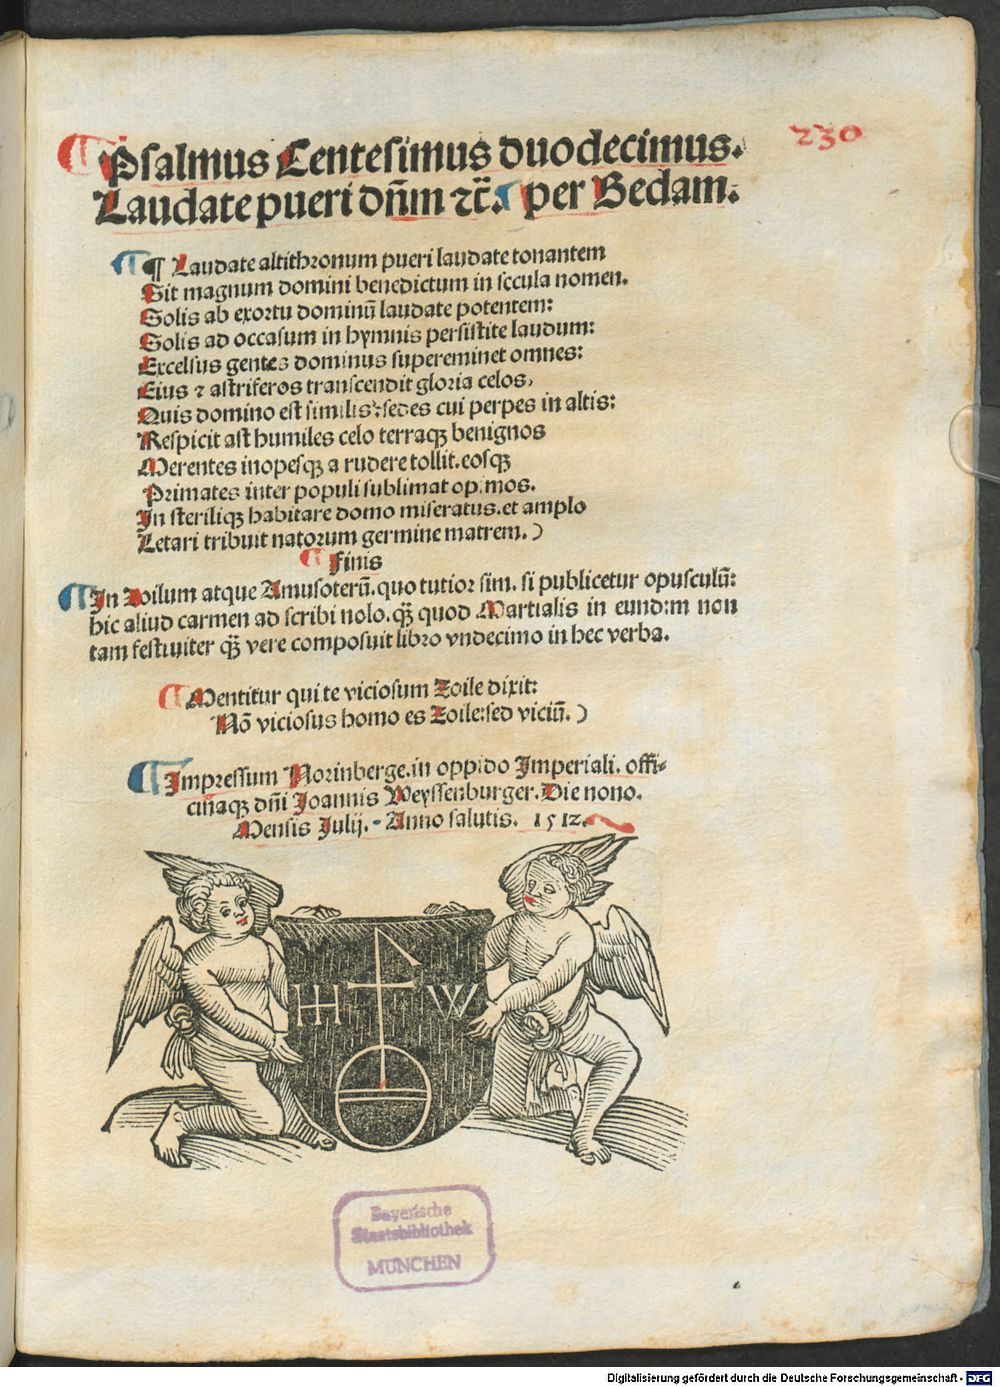 230
¶Psalmus Centesimus duodecimus.
Laudate pueri dñm ⁊c̃. ¶per Bedam.
¶¶ Laudate altithronum pueri laudate tonantem
Sit magnum domini benedictum in secula nomen.
Solis ab exortu dominũ laudate potentem:
Solis ad occasum in hymnis persistite laudum:
Excelsus gentes dominus supereminet omnes:
Eius ⁊ astriferos transcendit gloria celos,
Quis domino est similis: sedes cui perpes in altis:
Respicit ast humiles celo terraqꝫ benignos
Merentes inopesqꝫ a rudere tollit. eosqꝫ
Primates inter populi sublimat opimos.
In steriliqꝫ habitare domo miseratus. et amplo
Letari tribuit natorum germine matrem.)
¶ Finis
¶In Zoilum atque Amusoterũ. quo tutior sim. si publicetur opusculũ:
hic aliud carmen ad scribi nolo. qꝫ̃ quod Martialis in eundem non
tam festiuiter qꝫ̃ vere composuit libro vndecimo in hec verba.
¶Mentitur qui te viciosum Zoile dixit:
Nõ viciosus homo es Zoile: sed viciũ.)
¶Impressum Norinberge. in oppido Imperiali. offi-
cinaqꝫ dñi Joannis Weyssenburger. Die nono.
Mensis Julij. - Anno salutis. 1512.
H W
Bayerische
Staatsbibliothek
MÜNCHEN
Digitalisierung gefördert durch die Deutsche Forschungsgemeinschaft - DFG